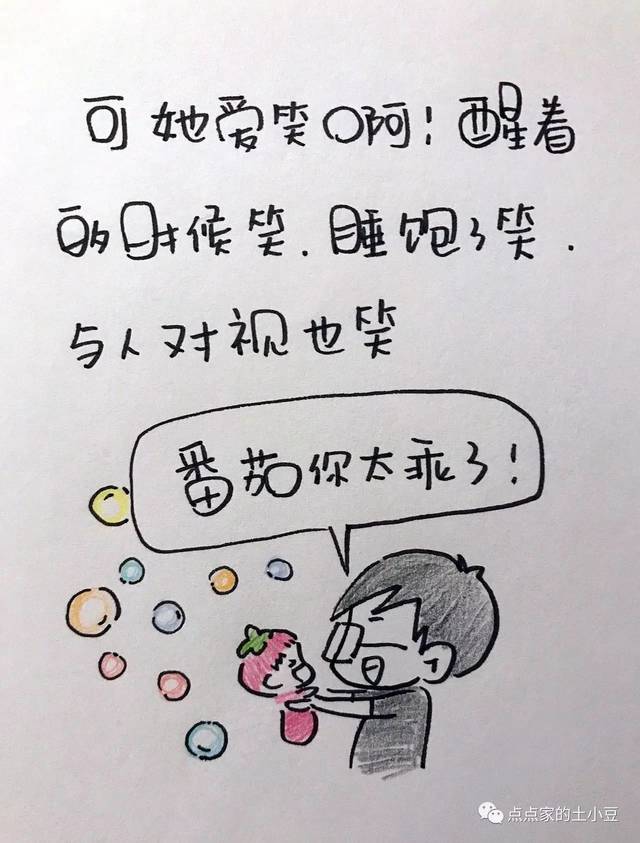 可她爱笑啊！醒着
的时候笑、睡饱了笑、
与人对视也笑
番茄你太乖了！
点点家的土小豆